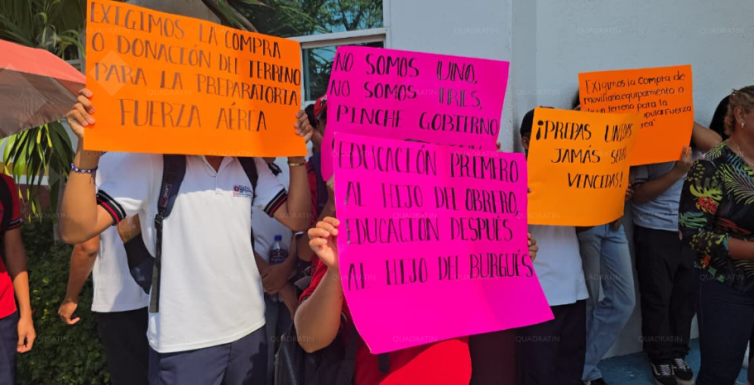 EXIGIMOS LA COMPRA
O DONACIÓN DEL TERRENO
PARA LA PREPARATORIA
FUERZA AÉREA
NO SOMOS UNO,
NO SOMOS
PINCHE GOBIERNO
EDUCACIÓN PRIMERO
AL HIJO DEL OBRERO,
EDUCACIÓN DESPUÉS
AL HIJO DEL BURGUÉS
¡PREPAS UNIDAS
JAMÁS
VENCIDAS!
Exigimos la Compra de
moviliario, equipamiento o
terreno para la
Fuerza
QUADRATIN